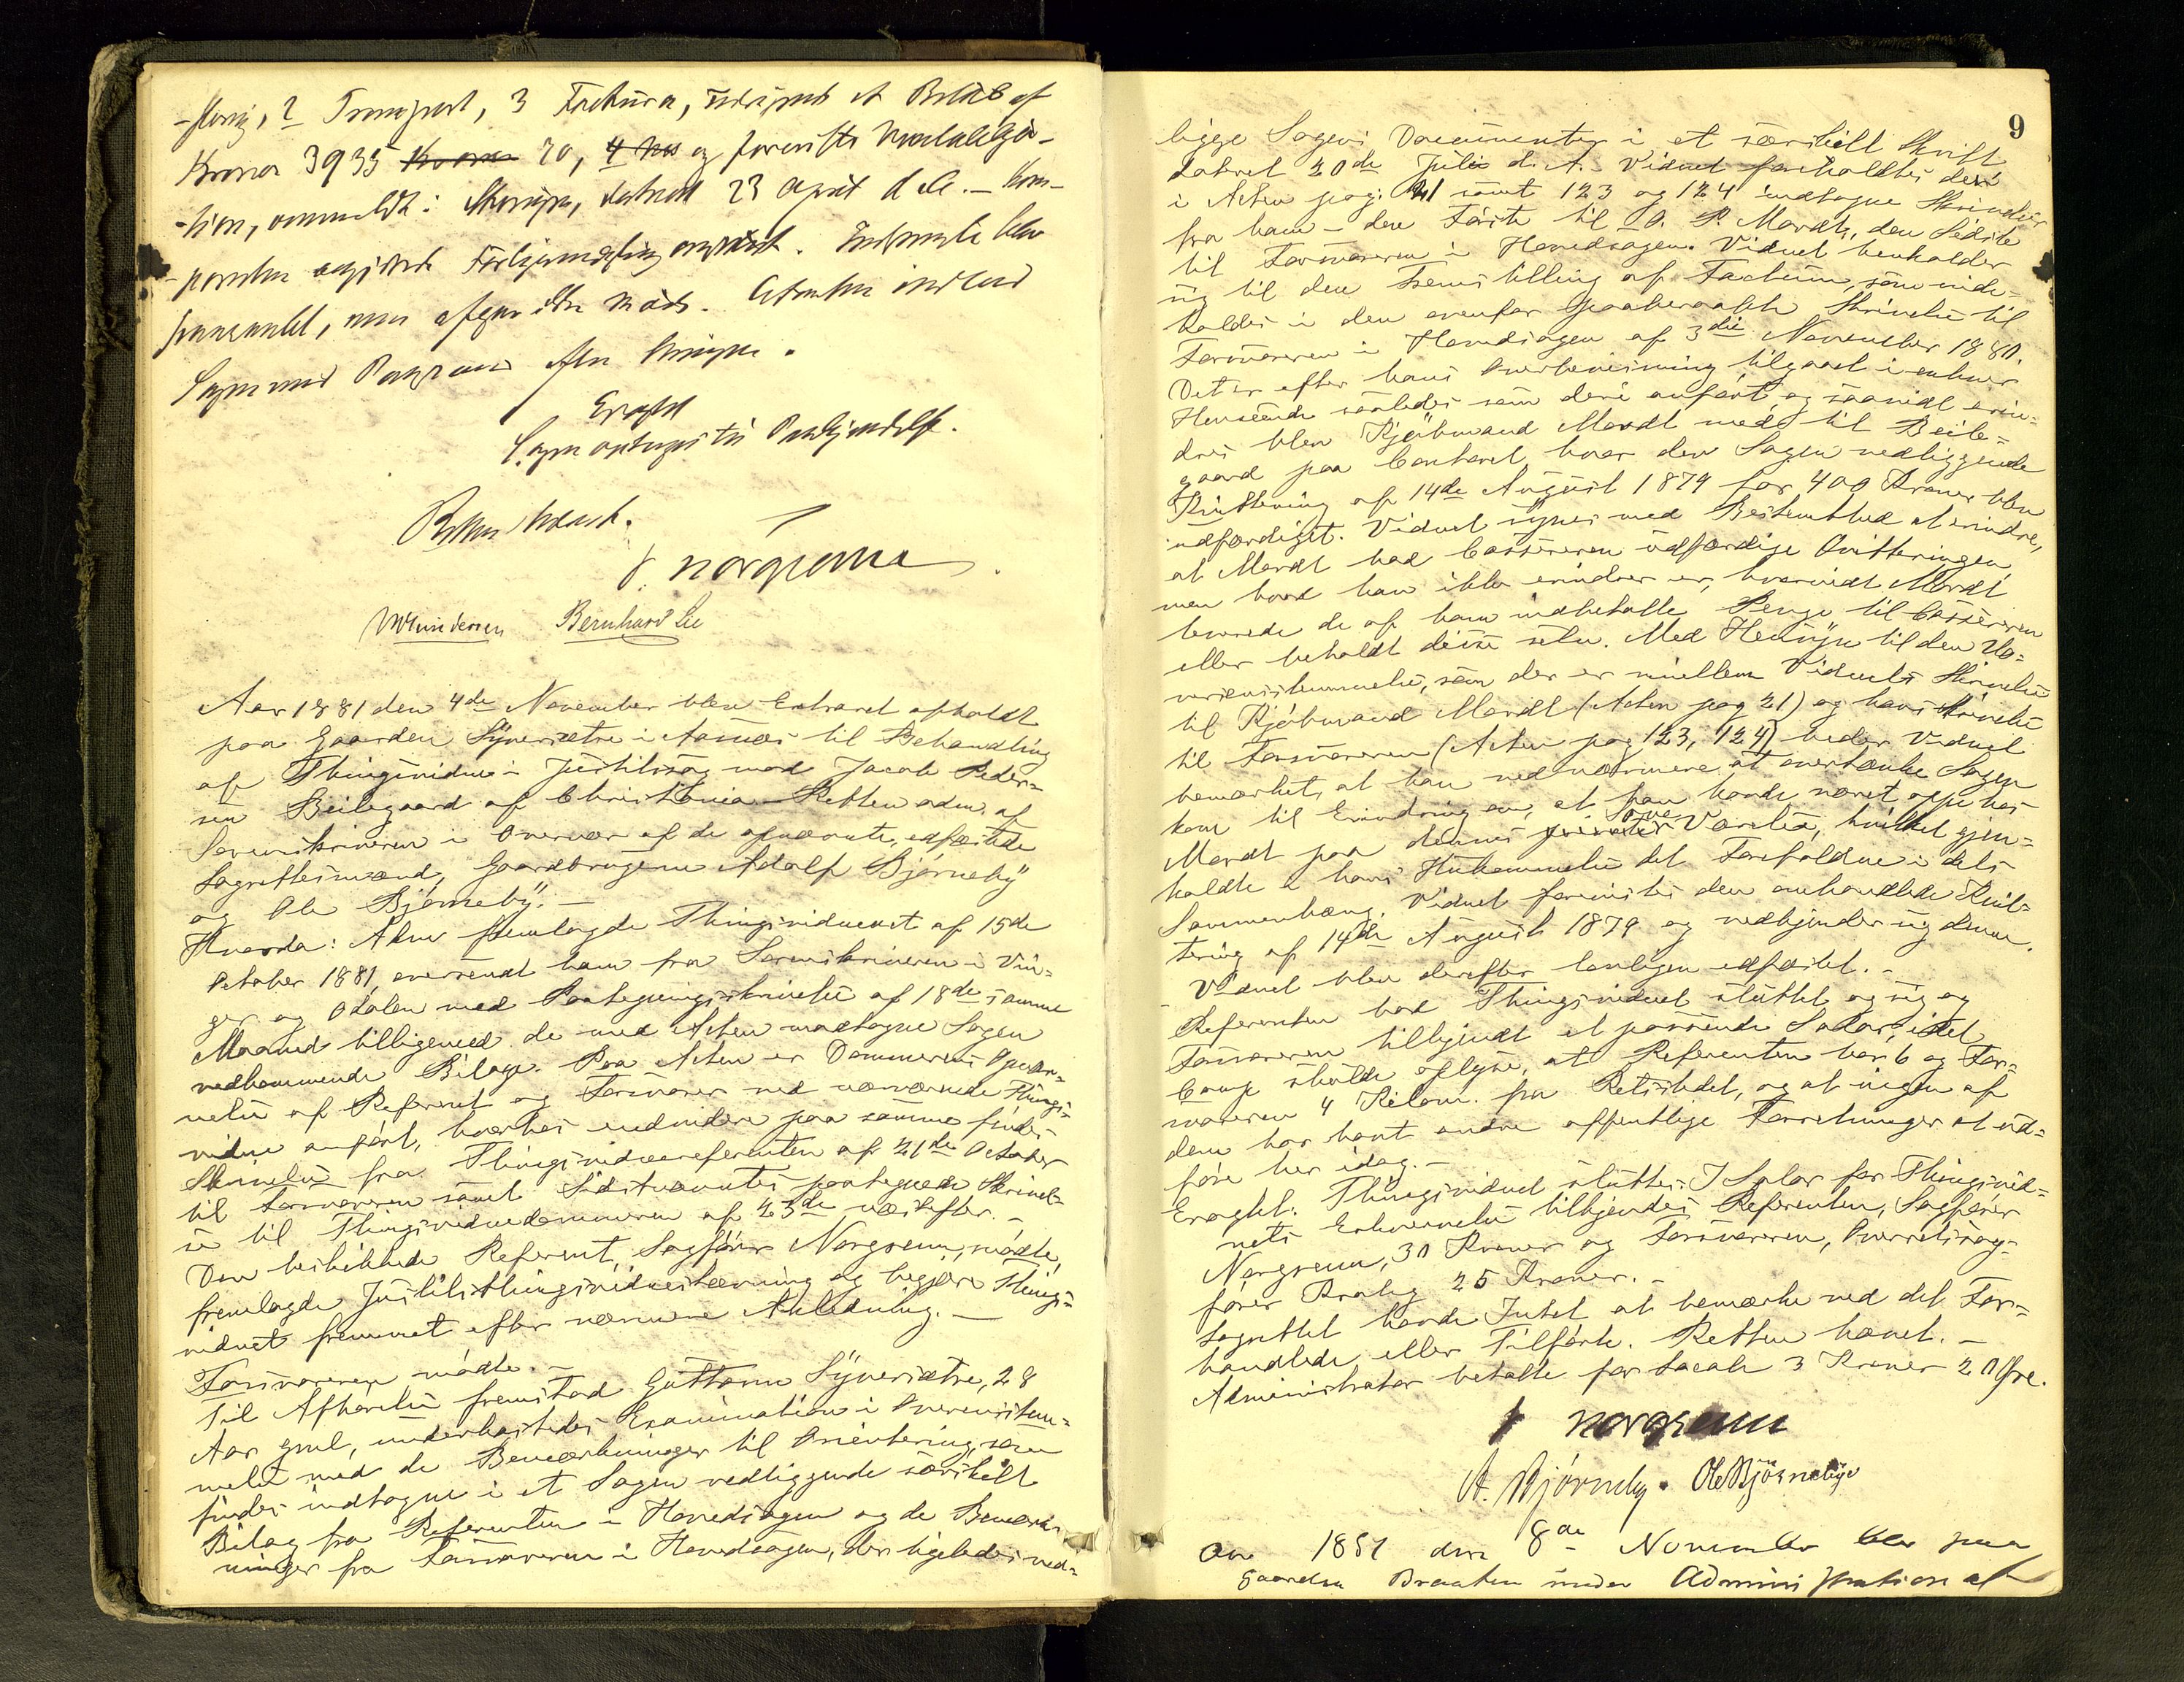 2 Transport, 3 Factura, et Beløb af
Kroner 3935 Kroner 70, og forenste
-tion, anmeldt: dateret 23 April d. A. -

fremmødt, men afgav ikke Møde. Citanten indlod
Sagen med Paastand efter Stevningen.
Eragtet
Sagen optages til Paakjendelse.
J. Norgrenn
M Gundersen Bernhard Lie
Aar 1881 den 4de November blev Extraret afholdt
paa Gaarden Syversætre i Aasnes til Behandling
af Thingsvidne i Justitssag mod Jacob Peder=
sen Beilegaard af Christiania - Retten adm. af
Sorenskriveren i Overvær af de opnævnte, edfæstede
Lagrettesmænd, Gaardbrugerne Adolf Bjørneby
og Ole Bjørneby. -
Hvorda: Adm. fremlagde Thingsvidneact af 15de
October 1881, oversendt ham fra Sorenskriveren i Vin=
ger og Odalen med Paategningsskrivelse af 18de samme
Maaned tilligemed de med Acten modtagne Sagen
vedkommende Bilage. Paa Acten er Dommerens Opnæv=
nelse af Referent og Forsvarer ved nærværende Things=
vidne anført, hvorhos endvidere paa samme findes
Skrivelse fra Thingsvidnereferenten af 21de October
til Forsvareren samt Sidstnævntes paategnede Skrivel=
se til Thingsvidnedommeren af 23de næstefter. -
Den beskikkede Referent, Sagfører Norgrenn, mødte,
fremlagde Justitsthingsvidnestævning og begjærede Things=
vidnet fremmet efter nærmere Anledning. -
Forsvareren mødte. -
Til Afhørelse fremstod Guttorm Syversætre, 28
Aar gml, underkastedes Examination i Overensstem=
melse med de Bemærkninger til Orientering, som
findes indtagne i et Sagen vedliggende særskilt
Bilag fra Referenten i Hovedsagen og de Bemærk=
ninger fra Forsvareren i Hovedsagen, der ligeledes ved=
9
ligge Sagens Documenter i et særskilt Skrift
dateret 20de Juli d. A. Vidnet foreholdtes de
i Acten pag: 21 samt 123 og 124 indtagne Skrivelser
fra ham - den Første til O. P. Mordt, den Sidste
til Forsvareren i Hovedsagen. Vidnet henholder
sig til den Fremstilling af Factum, som inde=
holdes i den ovenfor paaberaabte Skrivelse til
Forsvareren i Hovedsagen af 3die November 1880.
Det er efter hans Overbevisning tilgaaet i enhver
Henseende saaledes som deri anført og saavidt erin=
dres blev Kjøbmand Mordt med til Beile=
gaard paa Contoret hvor den Sagen vedliggende
Kvittering af 14de August 1879 for 400 Kroner blev
udfærdiget. Vidnet synes med Bestemthed at erindre,
at Mordt bad Cassereren udfærdige Qvitteringen,
men hvad han ikke erindrer er, hvorvidt Mordt
leverede de af ham indbetalte Penge til Cassereren
eller beholdt disse selv. Med Hensyn til den Uo=
verensstemmelse, som der er mellem Vidnets Skrivelse
til Kjøbmand Mordt (Acten pag 21) og hans Skrivelse
til Forsvareren (Acten pag 123, 124) beder Vidnet
bemærket, at han ved nærmere at overtænke Sagen
kom til Erindring om, at han havde været oppe hos
Mordt paa dennes private Værelse, hvilket gjen=
kaldte i hans Hukommelse det Forefaldne i dets
Sammenhæng. Vidnet forevistes den omhandlede Kvit=
tering af 14de August 1879 og vedkjender sig denne.
- Vidnet blev derefter lovligen edfæstet. -
Referenten bad Thingsvidnet sluttet og sig og
Forsvareren tilkjendt et passende Salær, idet
Comp skulde oplyse, at Referenten har 6 og For=
svareren 4 Kilom. fra Retsstedet, og at ingen af
dem har havt andre offentlige Forretninger at ud=
føre her idag. -
Eragtet. Thingsvidnet sluttes. I Salær for Thingsvid=
nets Erhvervelse tilkjendes Referenten, Sagfører
Norgrenn, 30 Kroner og Forsvareren, Overretssag=
fører Krabig 25 Kroner. -
Lagrettet havde Intet at bemærke ved det For=
handlede eller Tilførte. Retten hævet. -
Administrator betalte for Locale 3 Kroner 20 Øre.
J Norgrenn
A. Bjørneby. Ole Bjørnebye
Aar 1881 den 8de November blev paa
Gaarden Braaten under Administration af